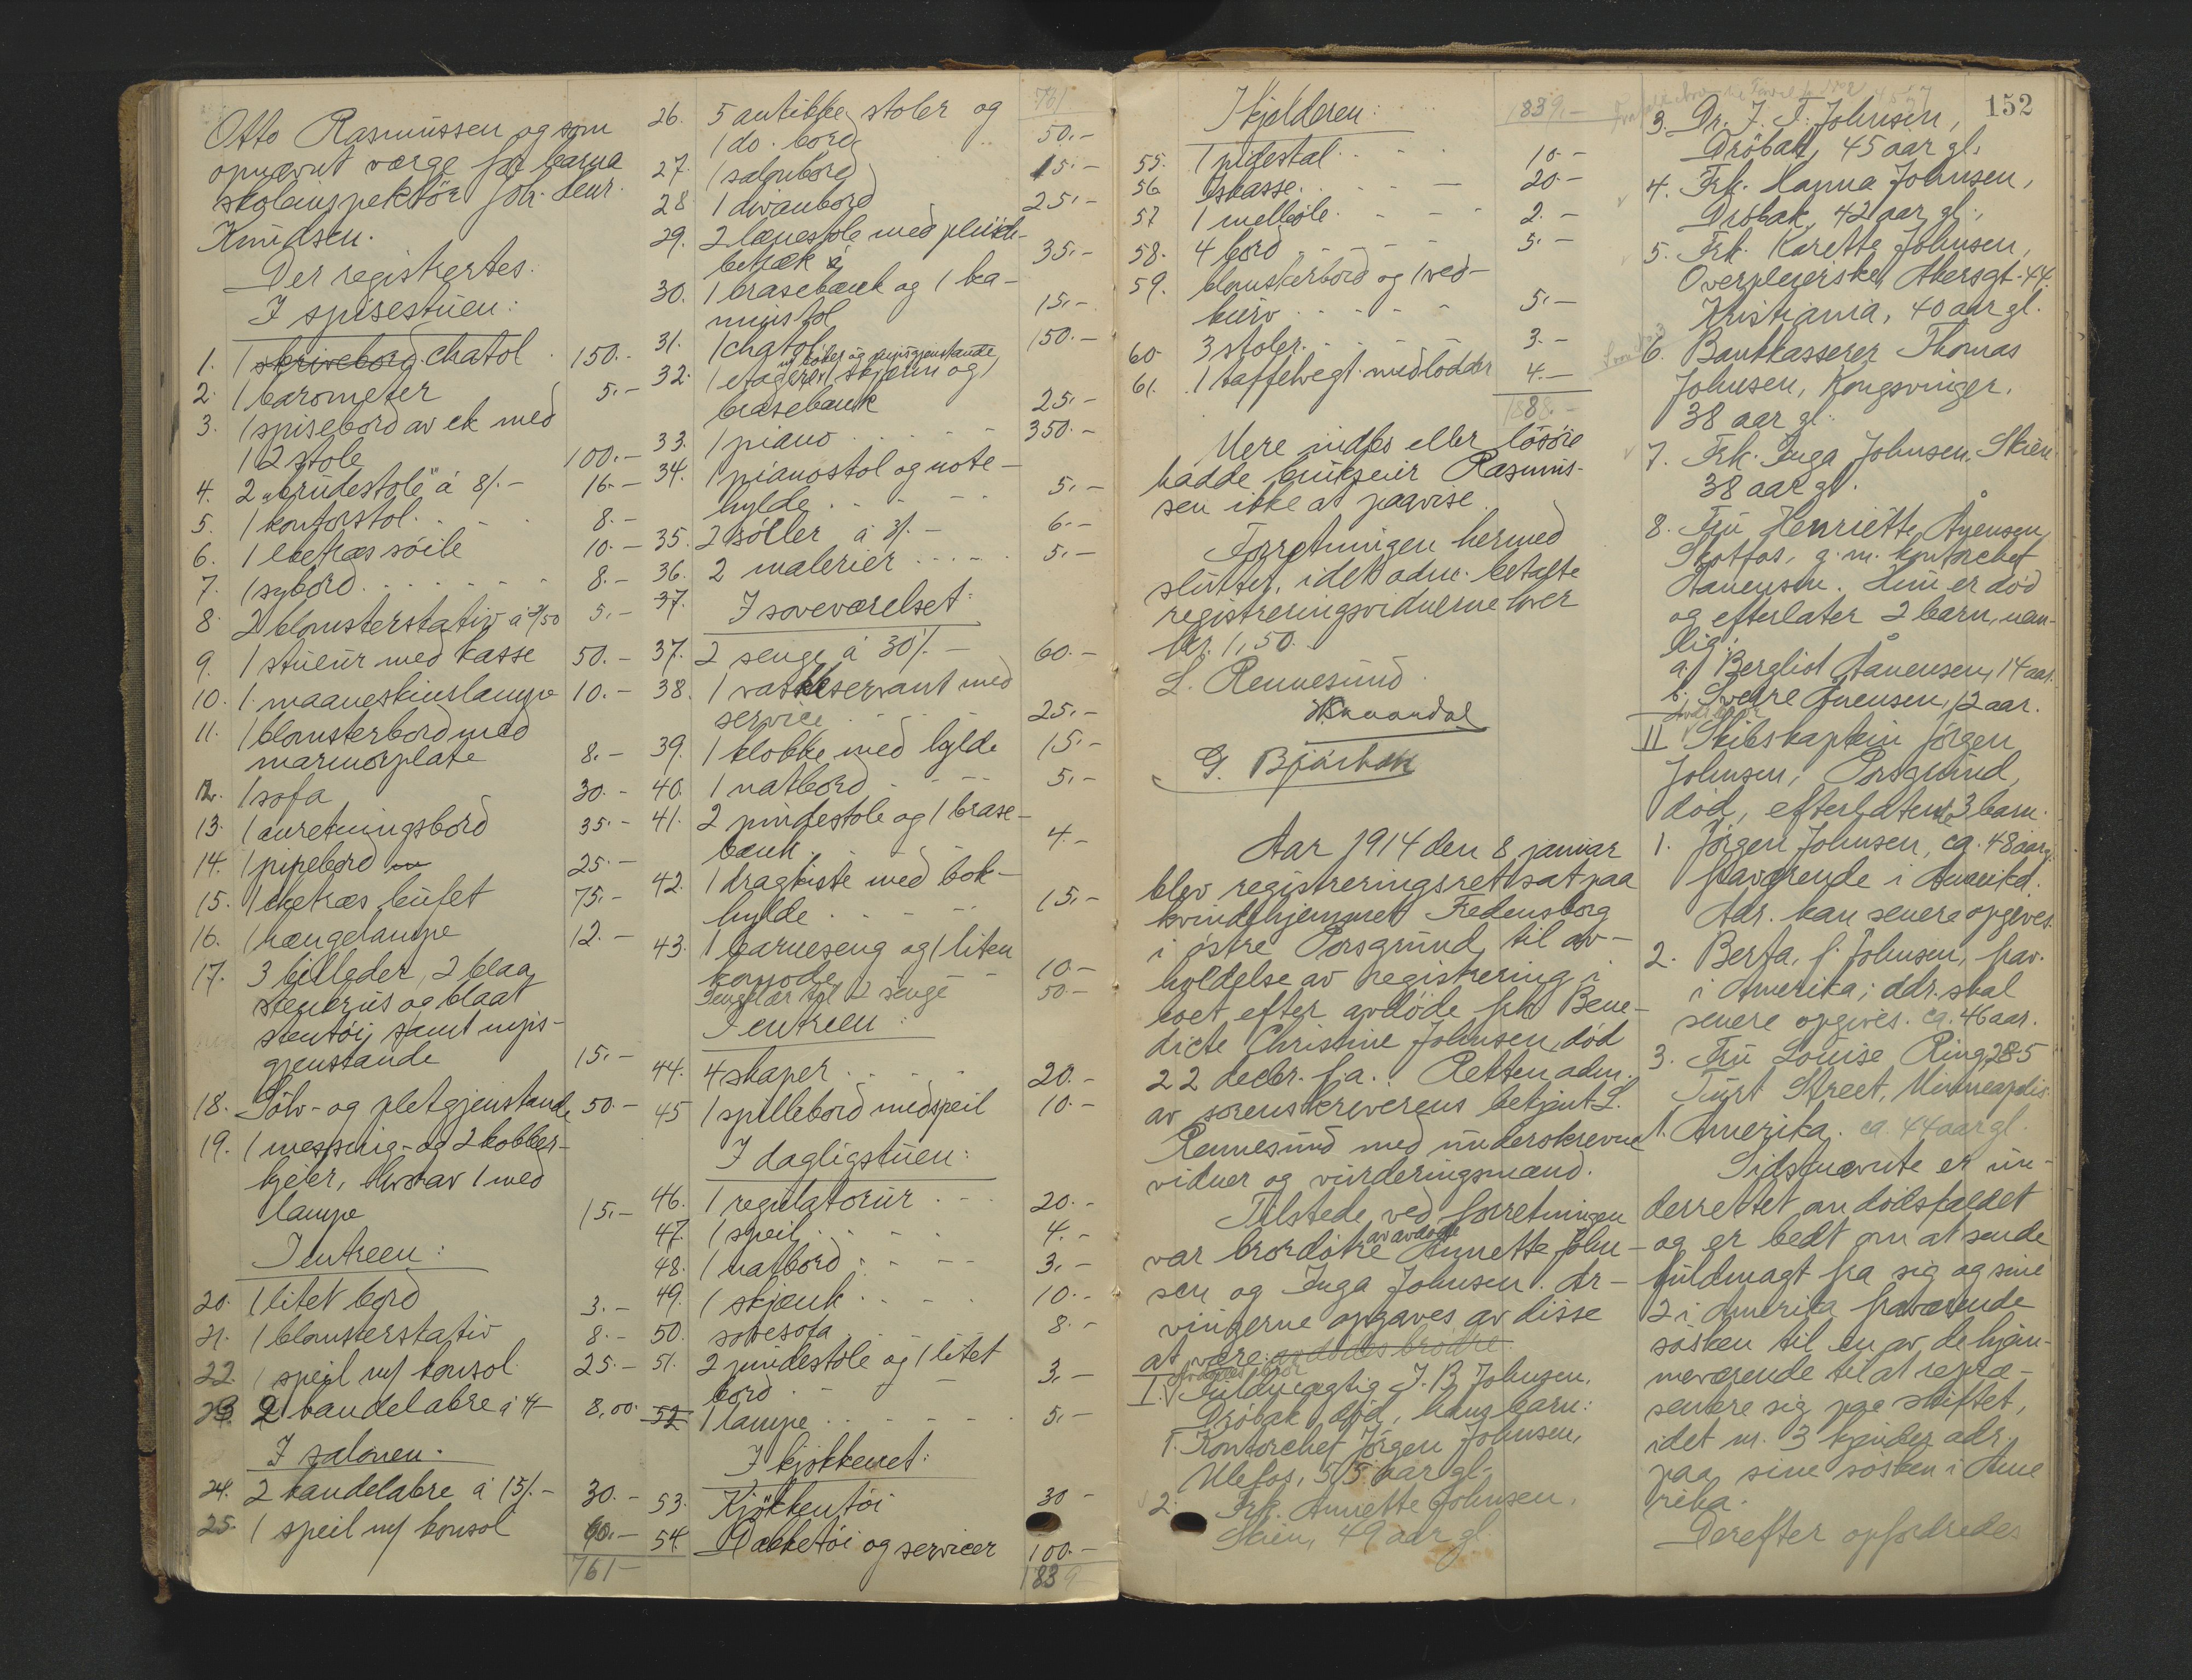 Otto Rasmussen og som
opnævnt værge for barna
skoleinspektör Joh. Henr.
Knudsen.
Der registrertes.
I spisestuen:
1. 1 skrivebord chatol 150.-
2. 1 barometer 5.-
3. 1 spisebord av ek med
12 stole 100.-
4. 2 "brudestole" á 8/.- 16.-
5. 1 kontorstol 8.-
6. 1 eketræs söile 10.-
7. 1 sybord 8.-
8 2 blomsterstativ á 2/50 5.-
9. 1 stueur med kasse 50.-
10. 1 maaneskinslampe 10.-
11. 1 blomsterbord med
marmorplate 8.-
12. 1 sofa 30.-
13. 1 anretningsbord 35.-
14. 1 pipebord 25.-
15. 1 eketræs bufet 75.-
16. 1 hængelampe 12.-
17. 3 billeder, 2 blaa
stenkrus og blaat
stentöi samt nips-
gjenstande 15.-
18. Sölv- og pletgjenstande 50.-
19. 1 messing- og 2 kobber-
kjeler, hvorav 1 med
lampe 15.-
I entreen:
20. 1 litet bord 3.-
21. 1 blomsterstativ 8.-
22. 1 speil m/ konsol 25.-
23. 2 kandelabre á 4- 8,00
I salonen.
24. 2 kandelabre á 15/.- 30.-
25. 1 speil m/ konsol 60.-
761-
761
26. 5 antikke stoler og
1 do. bord 50.-
27. 1 salonbord 15.-
28 1 divanbord 25.-
29. 2 lænestole med plüsch-
betræk 35.-
30. 1 brasebænk og 1 ka-
minstol 15.-
31. 1 chatol 150.-
m/ böker og nipsgjenstande,
32. 1 etagere, 1 skjærm og 1
brasebænk 25.-
33. 1 piano 350.-
34. 1 pianostol og note-
hylde 5.-
35. 2 söiler á 3/.- 6.-
36. 2 malerier 5.-
37. I soveværelset:
37. 2 senge á 30/.- 60.-
38. 1 vaskeservant med
service 25.-
39. 1 klokke med hylde 15.-
40. 1 natbord 5.-
41. 2 pindestole og 1 brase-
bænk 4.-
42. 1 dragkiste med bok-
hylde 15.-
43. 1 barneseng og 1 liten
komode 10.-
Sengklær til 2 senge 50.-
I entreen:
44. 4 skaper 20.-
45 1 spillebord med speil 10.-
I dagligstuen:
46. 1 regulatorur 20.-
47. 1 speil 4.-
48. 1 natbord 3.-
49. 1 skjænk 10.-
50. sovesofa 8.-
51. 2 pindestole og 1 litet
bord 3.-
52 1 lampe 5.-
I kjökkenet:
53. Kjökkentöi 30-
54. Dækketöi og servicer 100.-
1839-
I kjelderen: 1839.-
55. 1 pidestal 10.-
56 Iskasse 20.-
57 1 melböle 2.-
58. 4 bord 5.-
59. blomsterbord og 1 ved-
kurv 5.-
60. 3 stoler 3.-
61. 1 taffelvegt med lodder 4.-
1888.-
Mere indbo eller lösöre
hadde bruksеier Rasmus-
sen ikke at paavise.
Forretningen hermed
sluttet, idet adm. betalte
registreringsvidnerne hver
kr. 1,50.
L. Rennesund.
G. Bjørbæk
Aar 1914 den 8 januar
blev registreringsret sat paa
kvindehjemmet Fredensborg
i östre Porsgrund til av-
holdelse av registrering i
boet efter avdöde frk Bene-
dicte Christine Johnsen, död
22 decbr. f.a. Retten adm.
av sorenskriverens betjent L.
Rennesund med underskrevne
vidner og vurderingsmænd.
Tilstede ved forretningen
av avdöde
var brordötre Annette John-
sen og Inga Johnsen. Ar-
vingerne opgaves av disse
at være: avdödes brödre
Avdödes bror
I. Fuldmægtig J. B. Johnsen,
Dröbak, död, hans barn:
1. Kontorchef Jörgen Johnsen,
Ulefos, 55 aar gl.
2. Frk. Annette Johnsen,
Skien, 49 aar gl.
152
3. Dr. J. F. Johnsen,
Dröbak, 45 aar gl.
4. Frk. Hanna Johnsen,
Dröbak, 42 aar gl.,
5. Frk. Karette Johnsen,
Overpleierske, Akersgt. 44.
Kristiania, 40 aar gl.
6. Bankkasserer Thomas
Johnsen, Kongsvinger.
38 aar gl.
7. Frk. Inga Johnsen, Skien
38 aar gl.
8. Fru Henriette Ånensen,
Skotfos, g. m. kontorchef
Aanensen. Hun er död
og efterlater 2 barn, nem-
lig:
a. Bergliot Aanensen, 14 aar.
b. Sverre Ånensen, 12 aar.
II Skibskaptein Jörgen
Johnsen, Porsgrund,
död, efterlatende 3 barn.
1. Jörgen Johnsen, ca. 48 aar,
fraværende i Amerika.
Adr. kan senere opgives.
2. Berta, f. Johnsen, frav.
i Amerika; adr. skal
senere opgives. ca. 46 aar.
3. Fru Louise Ring, 285
Street, Minneapolis.
Amerika. ca. 44 aar gl.
Sidstnævnte er un-
derrettet om dödsfaldet
og er bedt om at sende
fuldmagt fra sig og sine
2 i Amerika fraværende
sösken til en av de hjem-
meværende til at repræ-
sentere sig paa skiftet,
idet nr. 3 kjender adr.
paa sine sösken i Ame
rika.
Derefter opfordredes